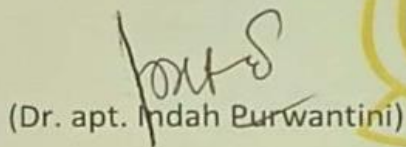 (Dr. apt. Indah Purwantini)